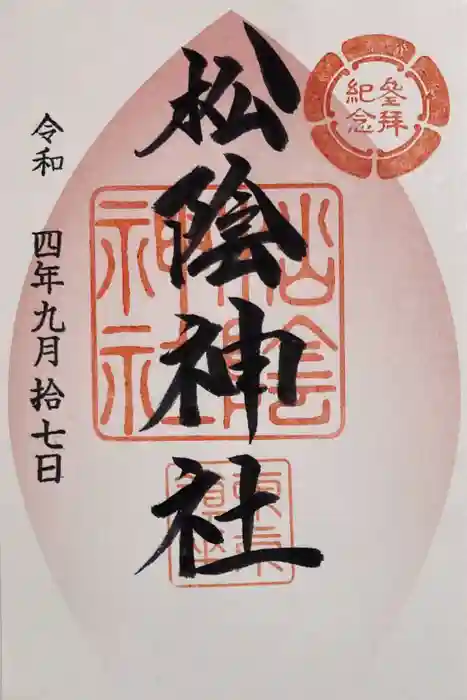 参拝
紀念
松陰神社
松陰
神社
東京
鎮座
令和 四年九月拾七日